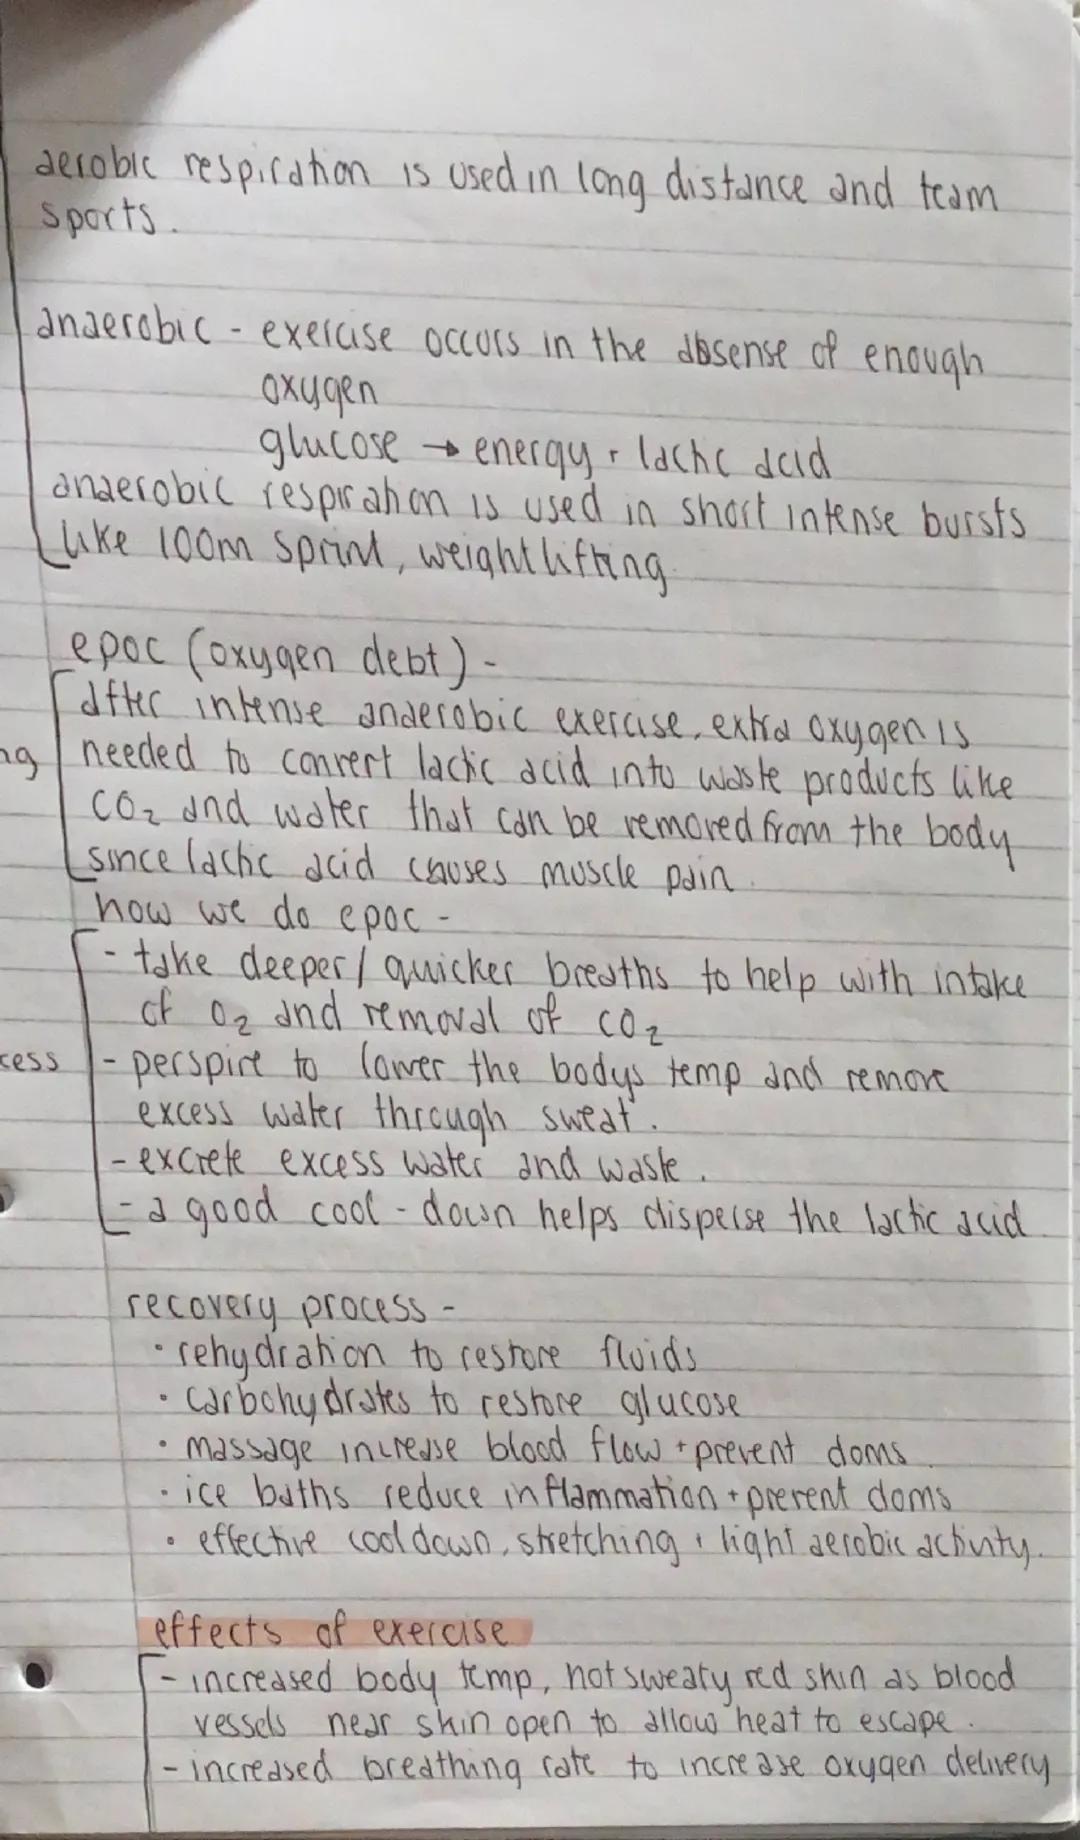 aerobic respiration is used in long distance and team
sports.
anaerobic - exercise occurs in the absense of enough
oxygen
glucose → energy + lactic acid
anaerobic respiration is used in short intense bursts
like 100m sprint, weightlifting.
epoc (oxygen debt) -
after intense anaerobic exercise, extra oxygen is
ng
needed to convert lactic acid into waste products like
CO₂ and water that can be removed from the body
since lactic acid causes muscle pain.
how we do epoc -
- take deeper / quicker breaths to help with intake
of O₂ and removal of CO₂
cess
- perspire to lower the bodys temp and remove
excess water through sweat.
- excrete excess water and waste.
- a good cool - down helps disperse the lactic acid.
recovery process -
• rehydration to restore fluids
• carbohydrates to restore glucose
• massage increase blood flow + prevent doms.
• ice baths reduce inflammation + prevent doms
• effective cooldown, stretching + light aerobic activity.
effects of exercise
- increased body temp, hot sweaty red skin as blood
vessels near skin open to allow heat to escape.
- increased breathing rate to increase oxygen delivery